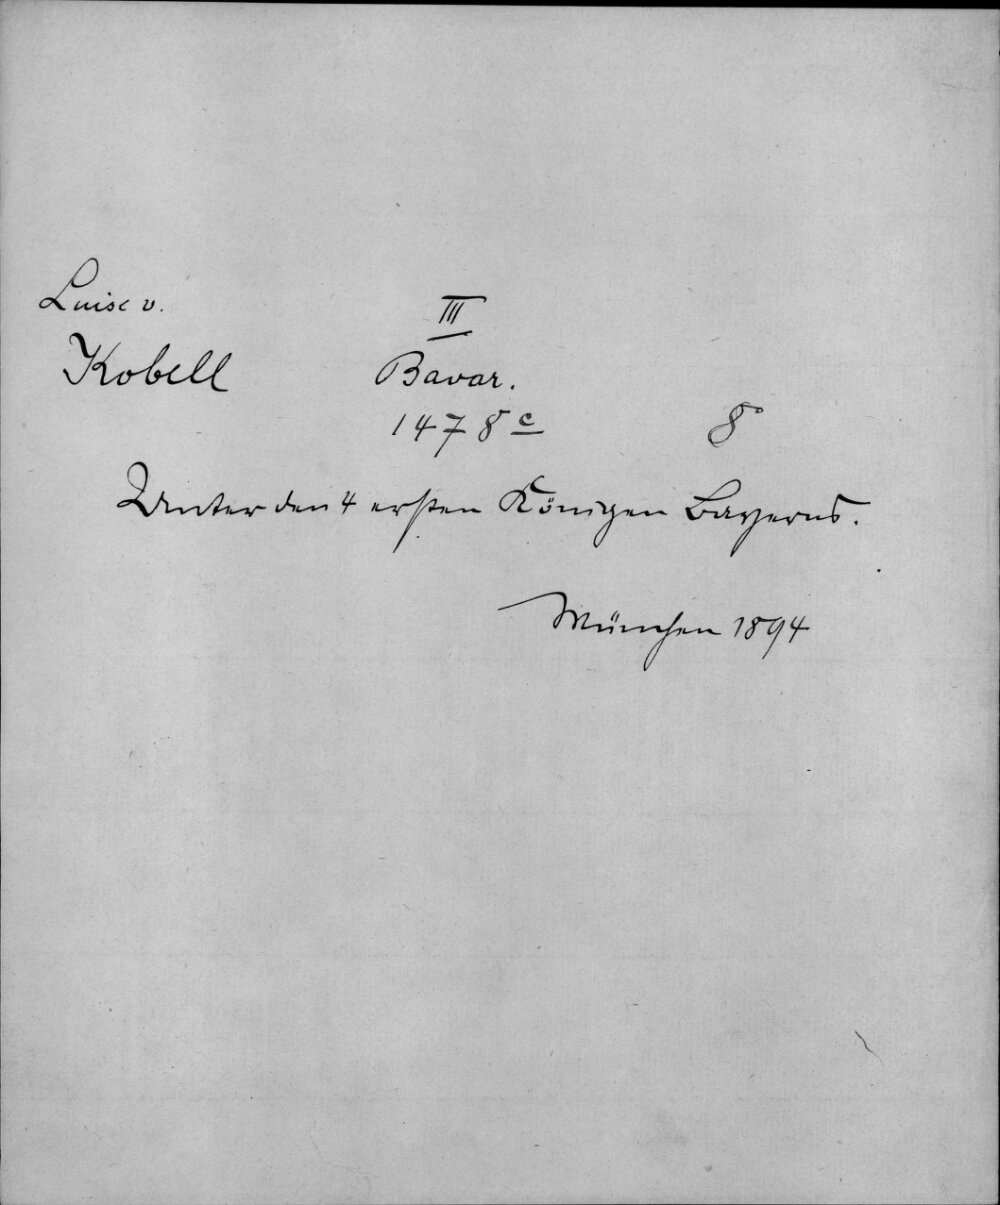 Luise v.
III
Kobell
Bavar.
1478 c
8°
Unter den 4 ersten Königen Bayerns.
München 1894